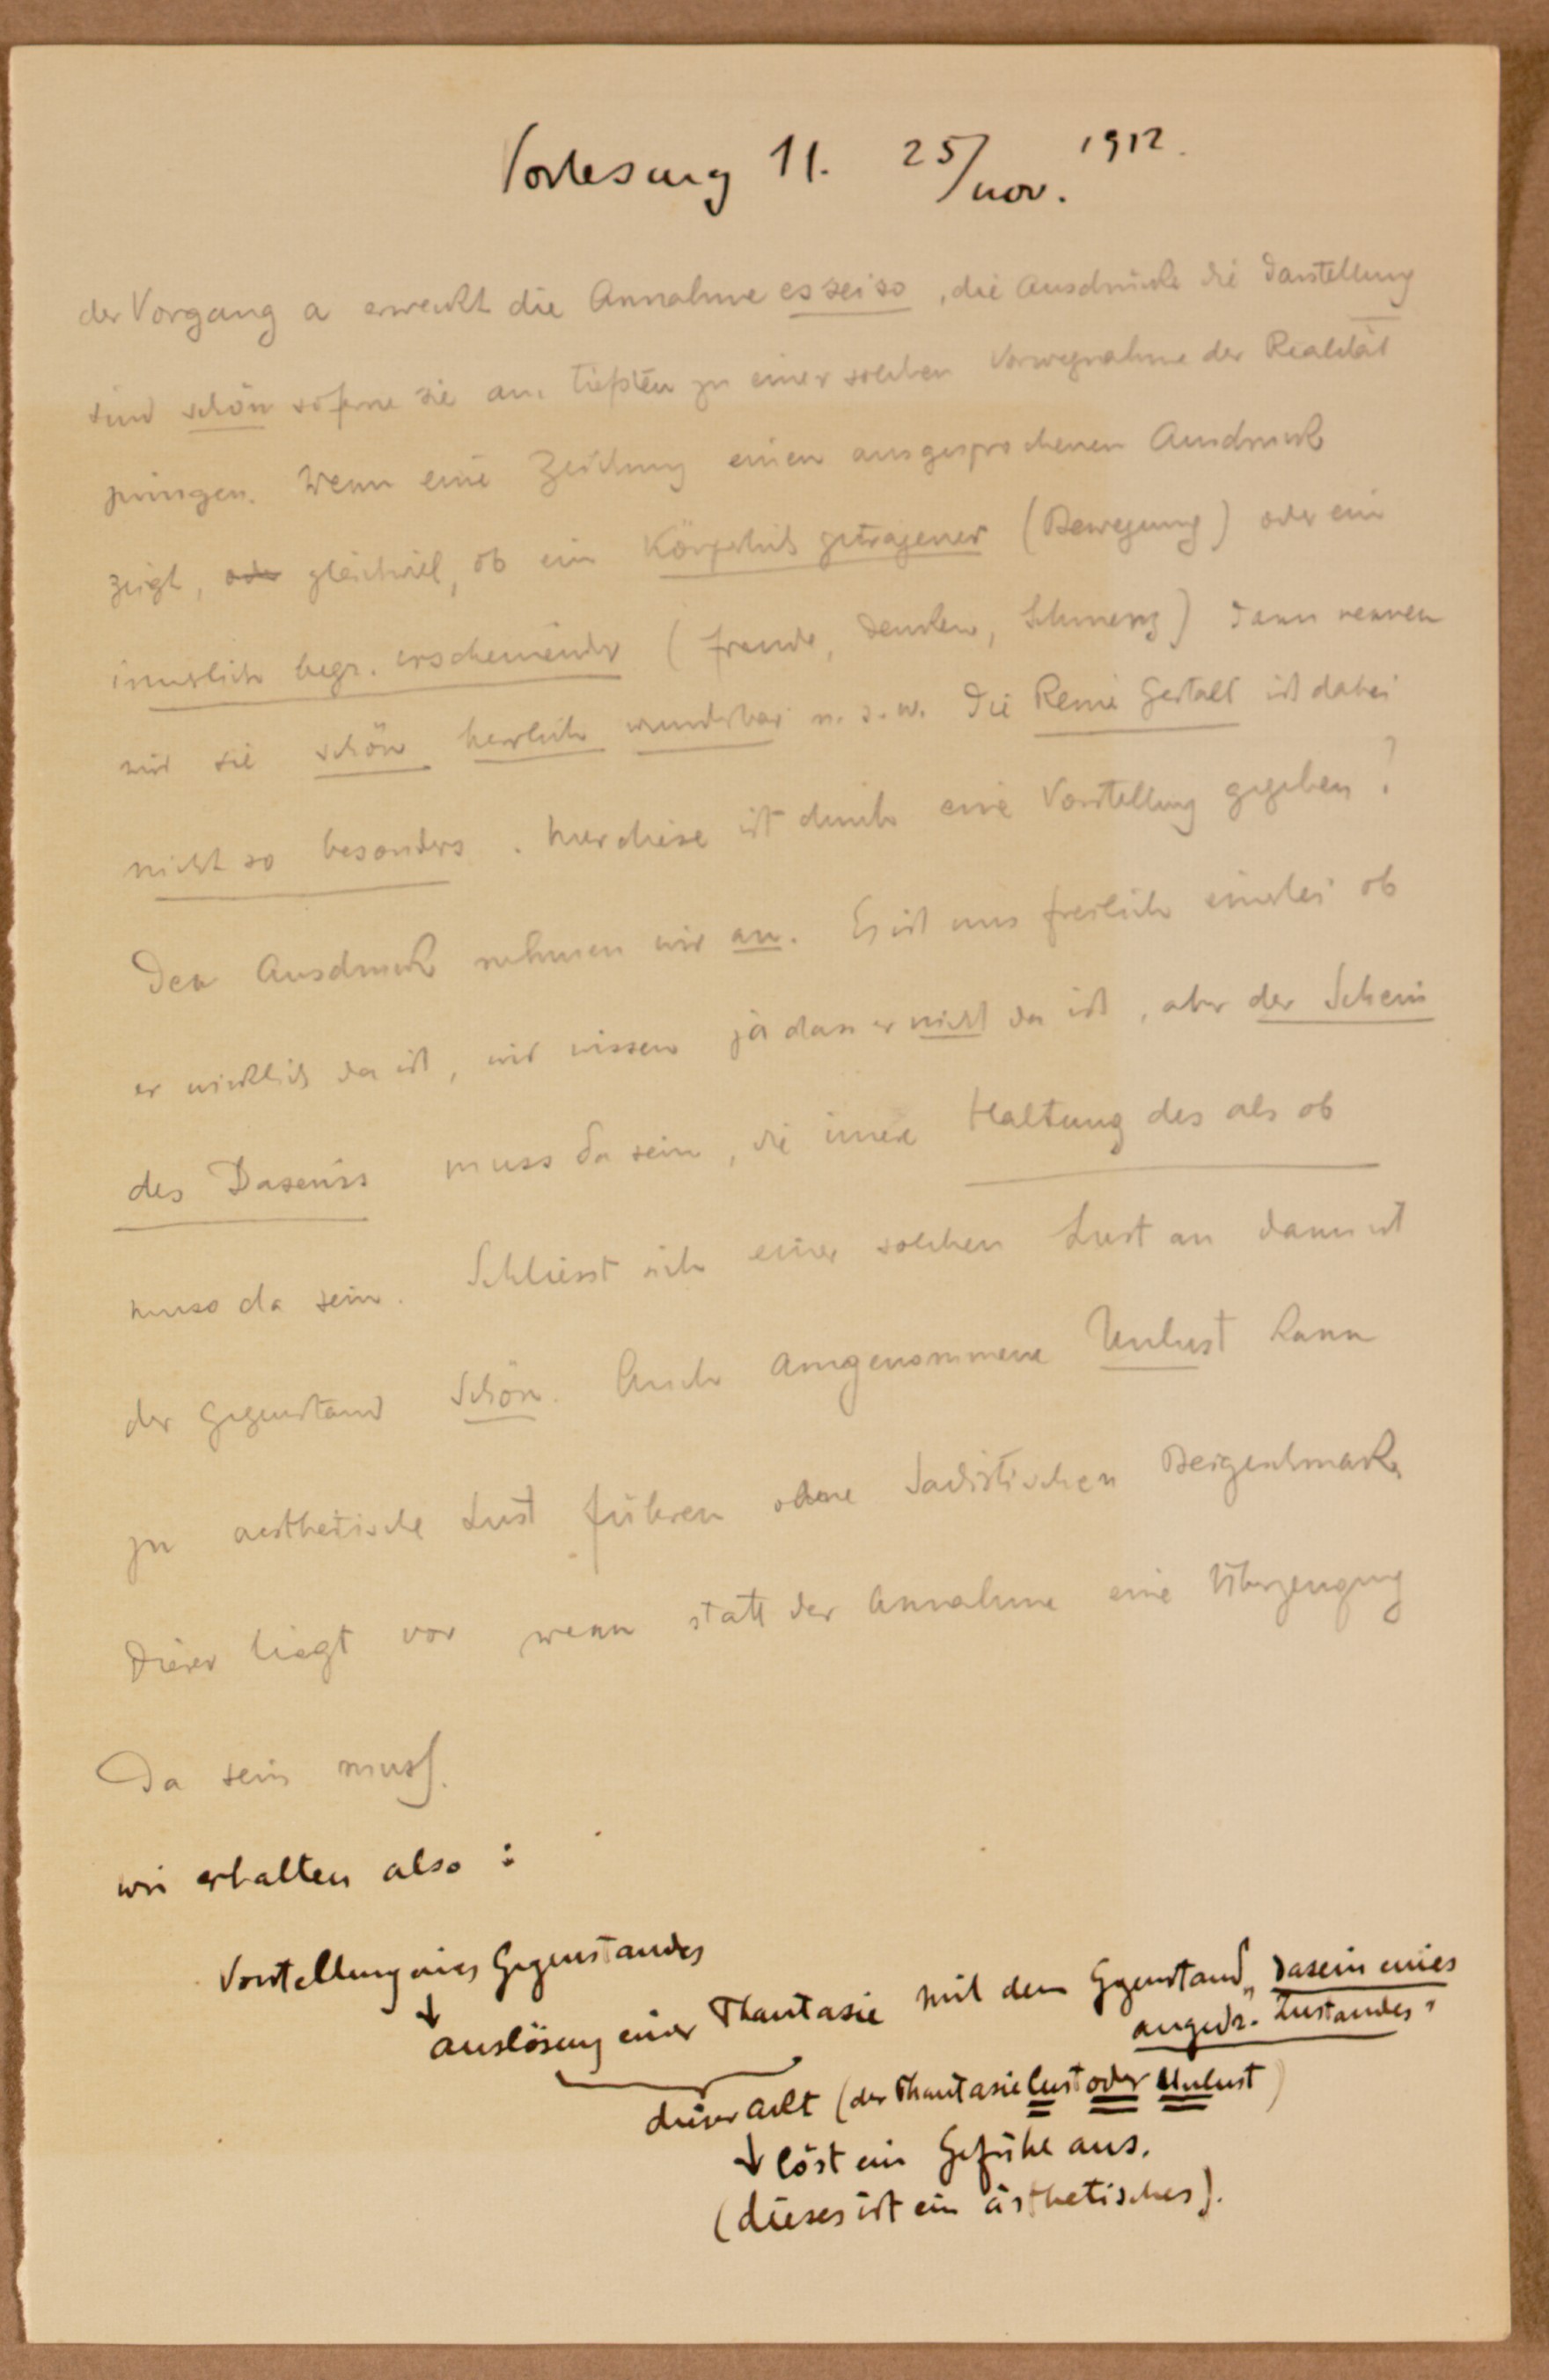 Vorlesung 11. 25/nov. 1912.
der Vorgang a erweckt die Annahme es sei so, die Ausdrücke die Darstellung
sind schön soferne sie am tiefsten zu einer solchen Vorwegnahme der Realität
zwingen. Wenn eine Zeichnung einen ausgesprochenen Ausdruck
zeigt, oder gleichviel, ob ein Körperlich getragener (Bewegung) oder ein
innerlich begr. erscheinender (Freude, Denken, Schmerz) dann nennen
wir sie schön herrlich wunderbar u. s. w. Die Reine Gestalt ist dabei
nicht so besonders. Nur diese ist durch eine Vorstellung gegeben!
Den Ausdruck nehmen wir an. Es ist uns freilich einerlei ob
er wirklich da ist, wir wissen ja dass er nicht da ist, aber der Schein
des Daseins muss da sein, die innere Haltung des als ob
muss da sein. Schliesst sich einer solchen Lust an dann ist
der Gegenstand Schön. Auch angenommene Unlust kann
zu aesthetische Lust führen ohne Sadistischen Beigeschmack
Dieser liegt vor wenn statt der Annahme eine Überzeugung
Da sein muss.
wir erhalten also :
Vorstellung eines Gegenstandes
↓
auslösung einer Phantasie mit dem Ggenstand „Dasein eines
angedr. Zustandes"
dieser Akt (der Phantasie Lust oder Unlust)
↓ löst ein Gefühl aus.
(dieses ist ein ästhetisches).